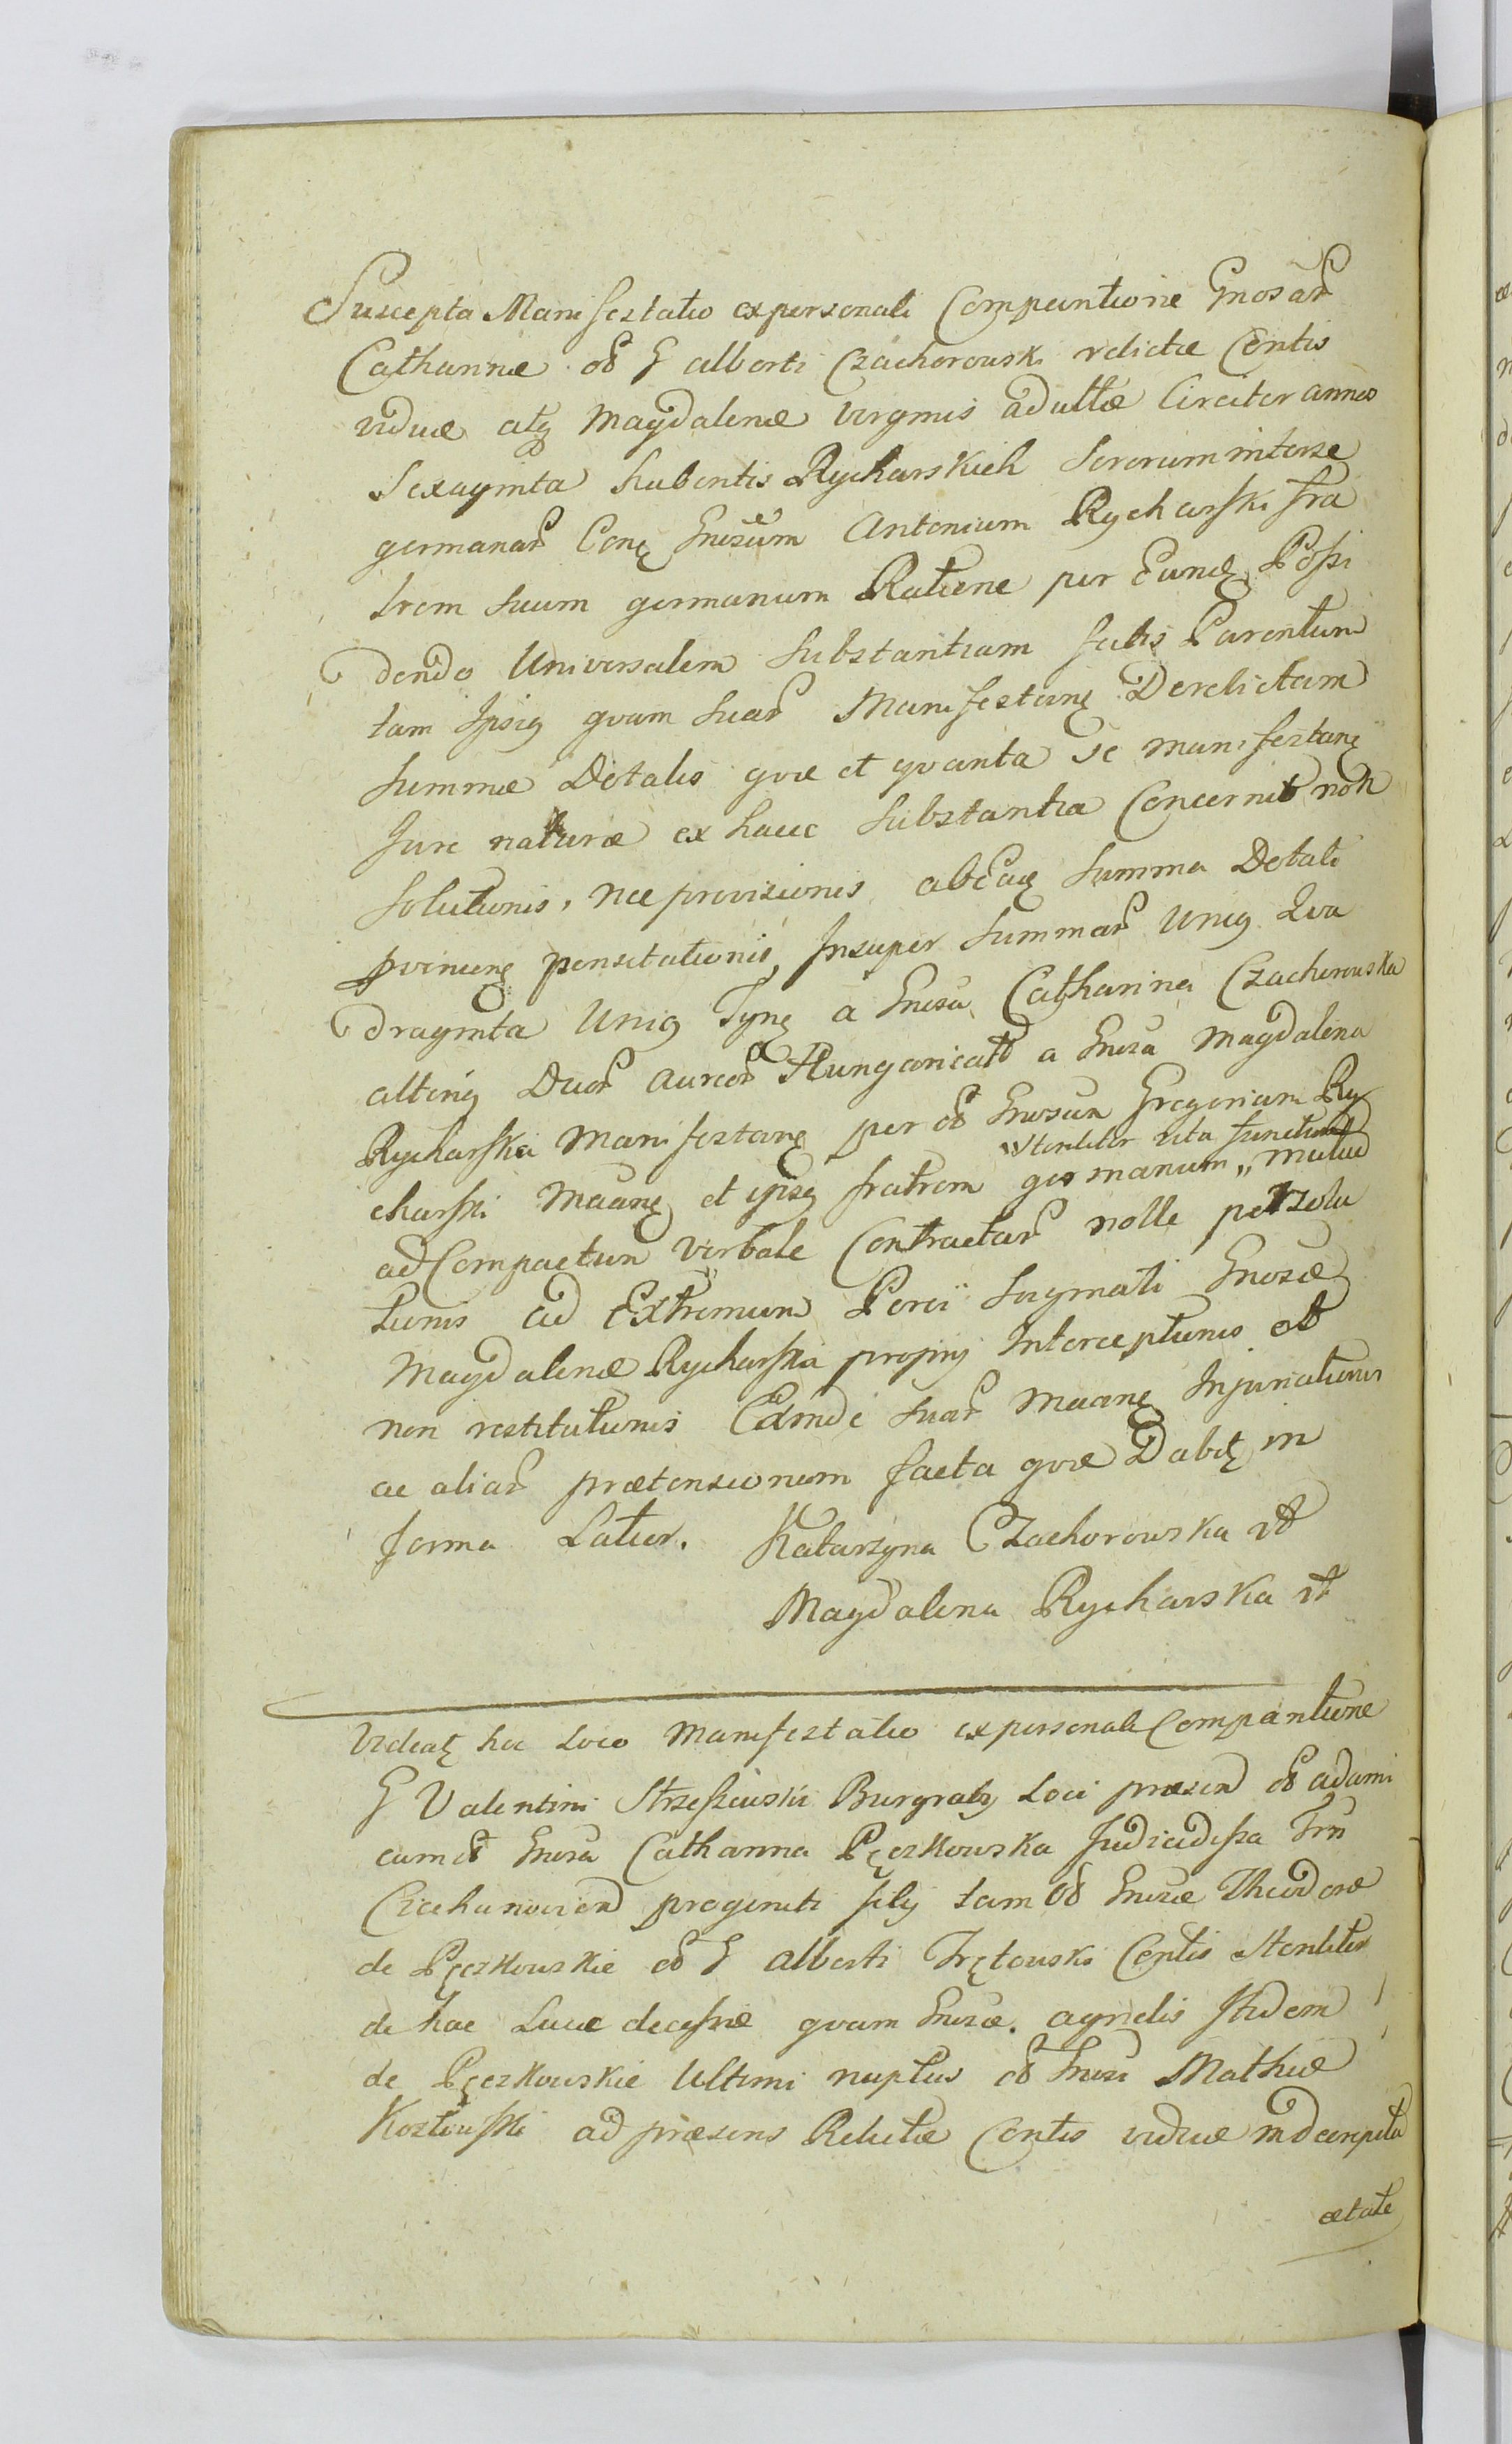 Suscepta Manifestatio ex personali Compantione Gnosar
Catharinæ olim G Alberti Czachorowski relictæ Contis
viduæ atq Magdalenæ virginis adultæ Circiter annos
Sexaginta habentis Rycharskich Sororum interse
germanar Conq Gnosum Antonium Rycharski fra
trem suum germanum Ratione per Eundę Possi
dendo Universalem Substantiam fatis Parentum
tam Ipsiq quam suar Manifestanę Derelictam
Summæ Dotalis quæ et quanta se manifestanę
Jure naturæ ex hacce Substantia Concernit non
Solutionis, nec provisionis ab eaę Summa Dotali
provinienę pensitationis, Insuper Summar Uniq Qua
draginta Uniq Tynę a Gnosa Catharina Czachorowska
alteriq Duor aureor Hungaricald a Gnosa Magdalena
Rycharska Manifestanę per olim Gnosum Gregorium Ry
Steriliter vita functum
charski Maanę et ipsiq fratrem germanum „ mutuo
ad Compactum verbale Contractar nolle persolu
tionis ad Extremum Porci Saginati Gnosæ
Magdalenæ Rycharska proprij Interceptionis et
non restitutionis Exinde suar Maanę Injuriationis
ac aliar prætensionum facta quæ Dabitę in
forma Latior. Katarzyna Czachorowska
Magdalena Rycharska
Videatę hoc Loco Manifestatio ex personali Compantione
G Valentini Burgraby Loci præsen olim Adami
cum olim Gnosa Catharina Pęczkowska Judicidissa Trn
Ciechanovien progeniti filij tam olim Gnosæ Theodoræ
de Pęczkowskie olim G Alberti Trętowski Contis Steriliter
de hac Luce decessæ quam Gnosæ Agnetis Itidem
de Pęczkowskie Ultimi nuptus olim Gnosi Mathiæ
Kozłowski ad præsens Relictæ Contis viduæ in decrepita
ætate